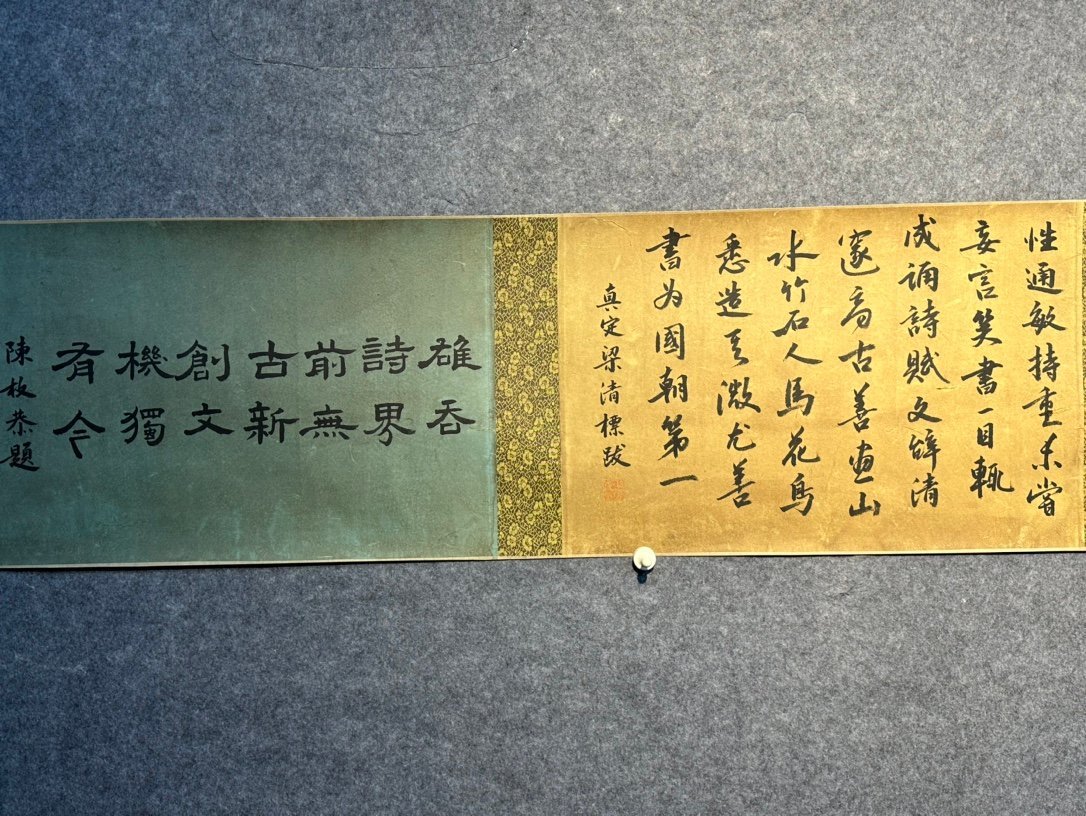 性通敏持重未嘗
妄言笑書一目輒
成誦詩賦文辭清
邃高古善畫山
水竹石人馬花鳥
悉造其微尤善
書為國朝第一
真定梁清標跋
雄吞
詩界
前無
古新
創文
機獨
有今
陳枚恭題